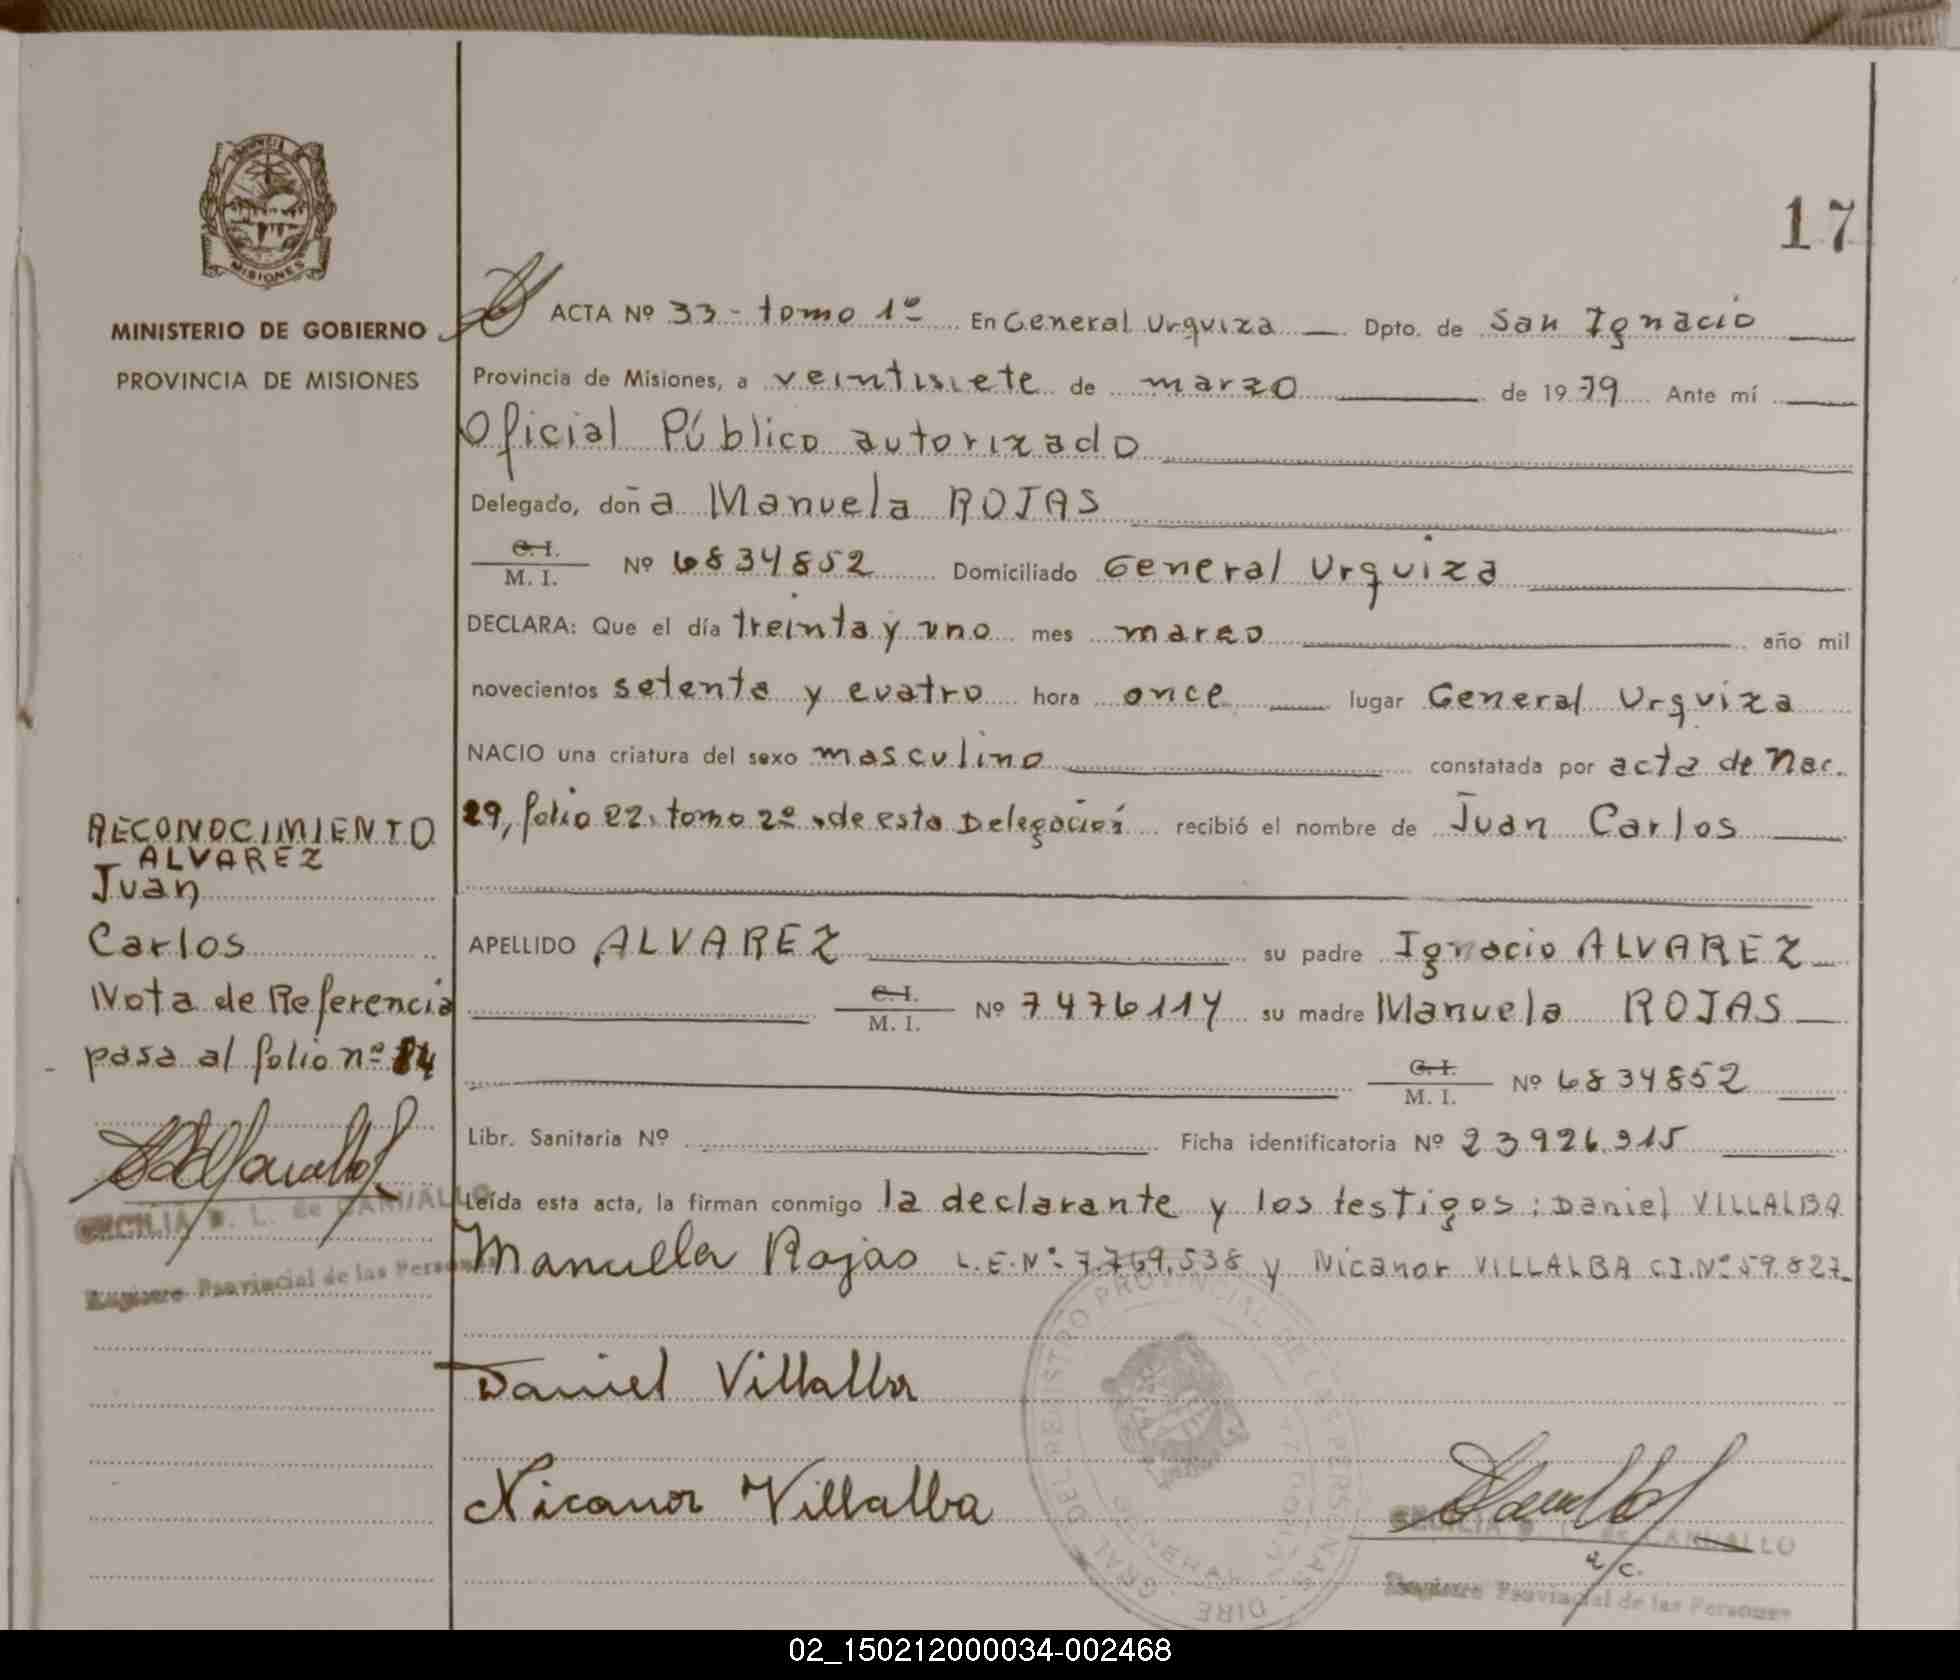 MISIONES
MINISTERIO DE GOBIERNO
PROVINCIA DE MISIONES
RECONOCIMIENTO
ALVAREZ
Juan
Carlos
Nota de Referencia
pasa al folio nº 84
CECILIA L. de
Registro Provincial de las Personas
17
ACTA Nº 33 - tomo 1º En General Urquiza Dpto. de San Ignacio
Provincia de Misiones, a veintisiete de marzo de 1979 Ante mí
Oficial Público autorizado
Delegado, doña Manuela ROJAS
C. I.
M. I. Nº 6834852 Domiciliado General Urquiza
DECLARA: Que el día treinta y uno mes marzo año mil
novecientos setenta y cuatro hora once lugar General Urquiza
NACIO una criatura del sexo masculino constatada por acta de Nac.
29, folio 22, tomo 2º de esta Delegación recibió el nombre de Juan Carlos
APELLIDO ALVAREZ su padre Ignacio ALVAREZ
C. I.
M. I. Nº 7476114 su madre Manuela ROJAS
C. I.
M. I. Nº 6834852
Libr. Sanitaria Nº Ficha identificatoria Nº 23.926.915
Leída esta acta, la firman conmigo la declarante y los testigos: Daniel VILLALBA
Manuella Rojas L.E.Nº: 7.769.538 y Nicanor VILLALBA C.I.Nº 59.827
Daniel Villalba
Nicanor Villalba
CECILIA L. de
a/c.
Registro Provincial de las Personas
02_150212000034-002468